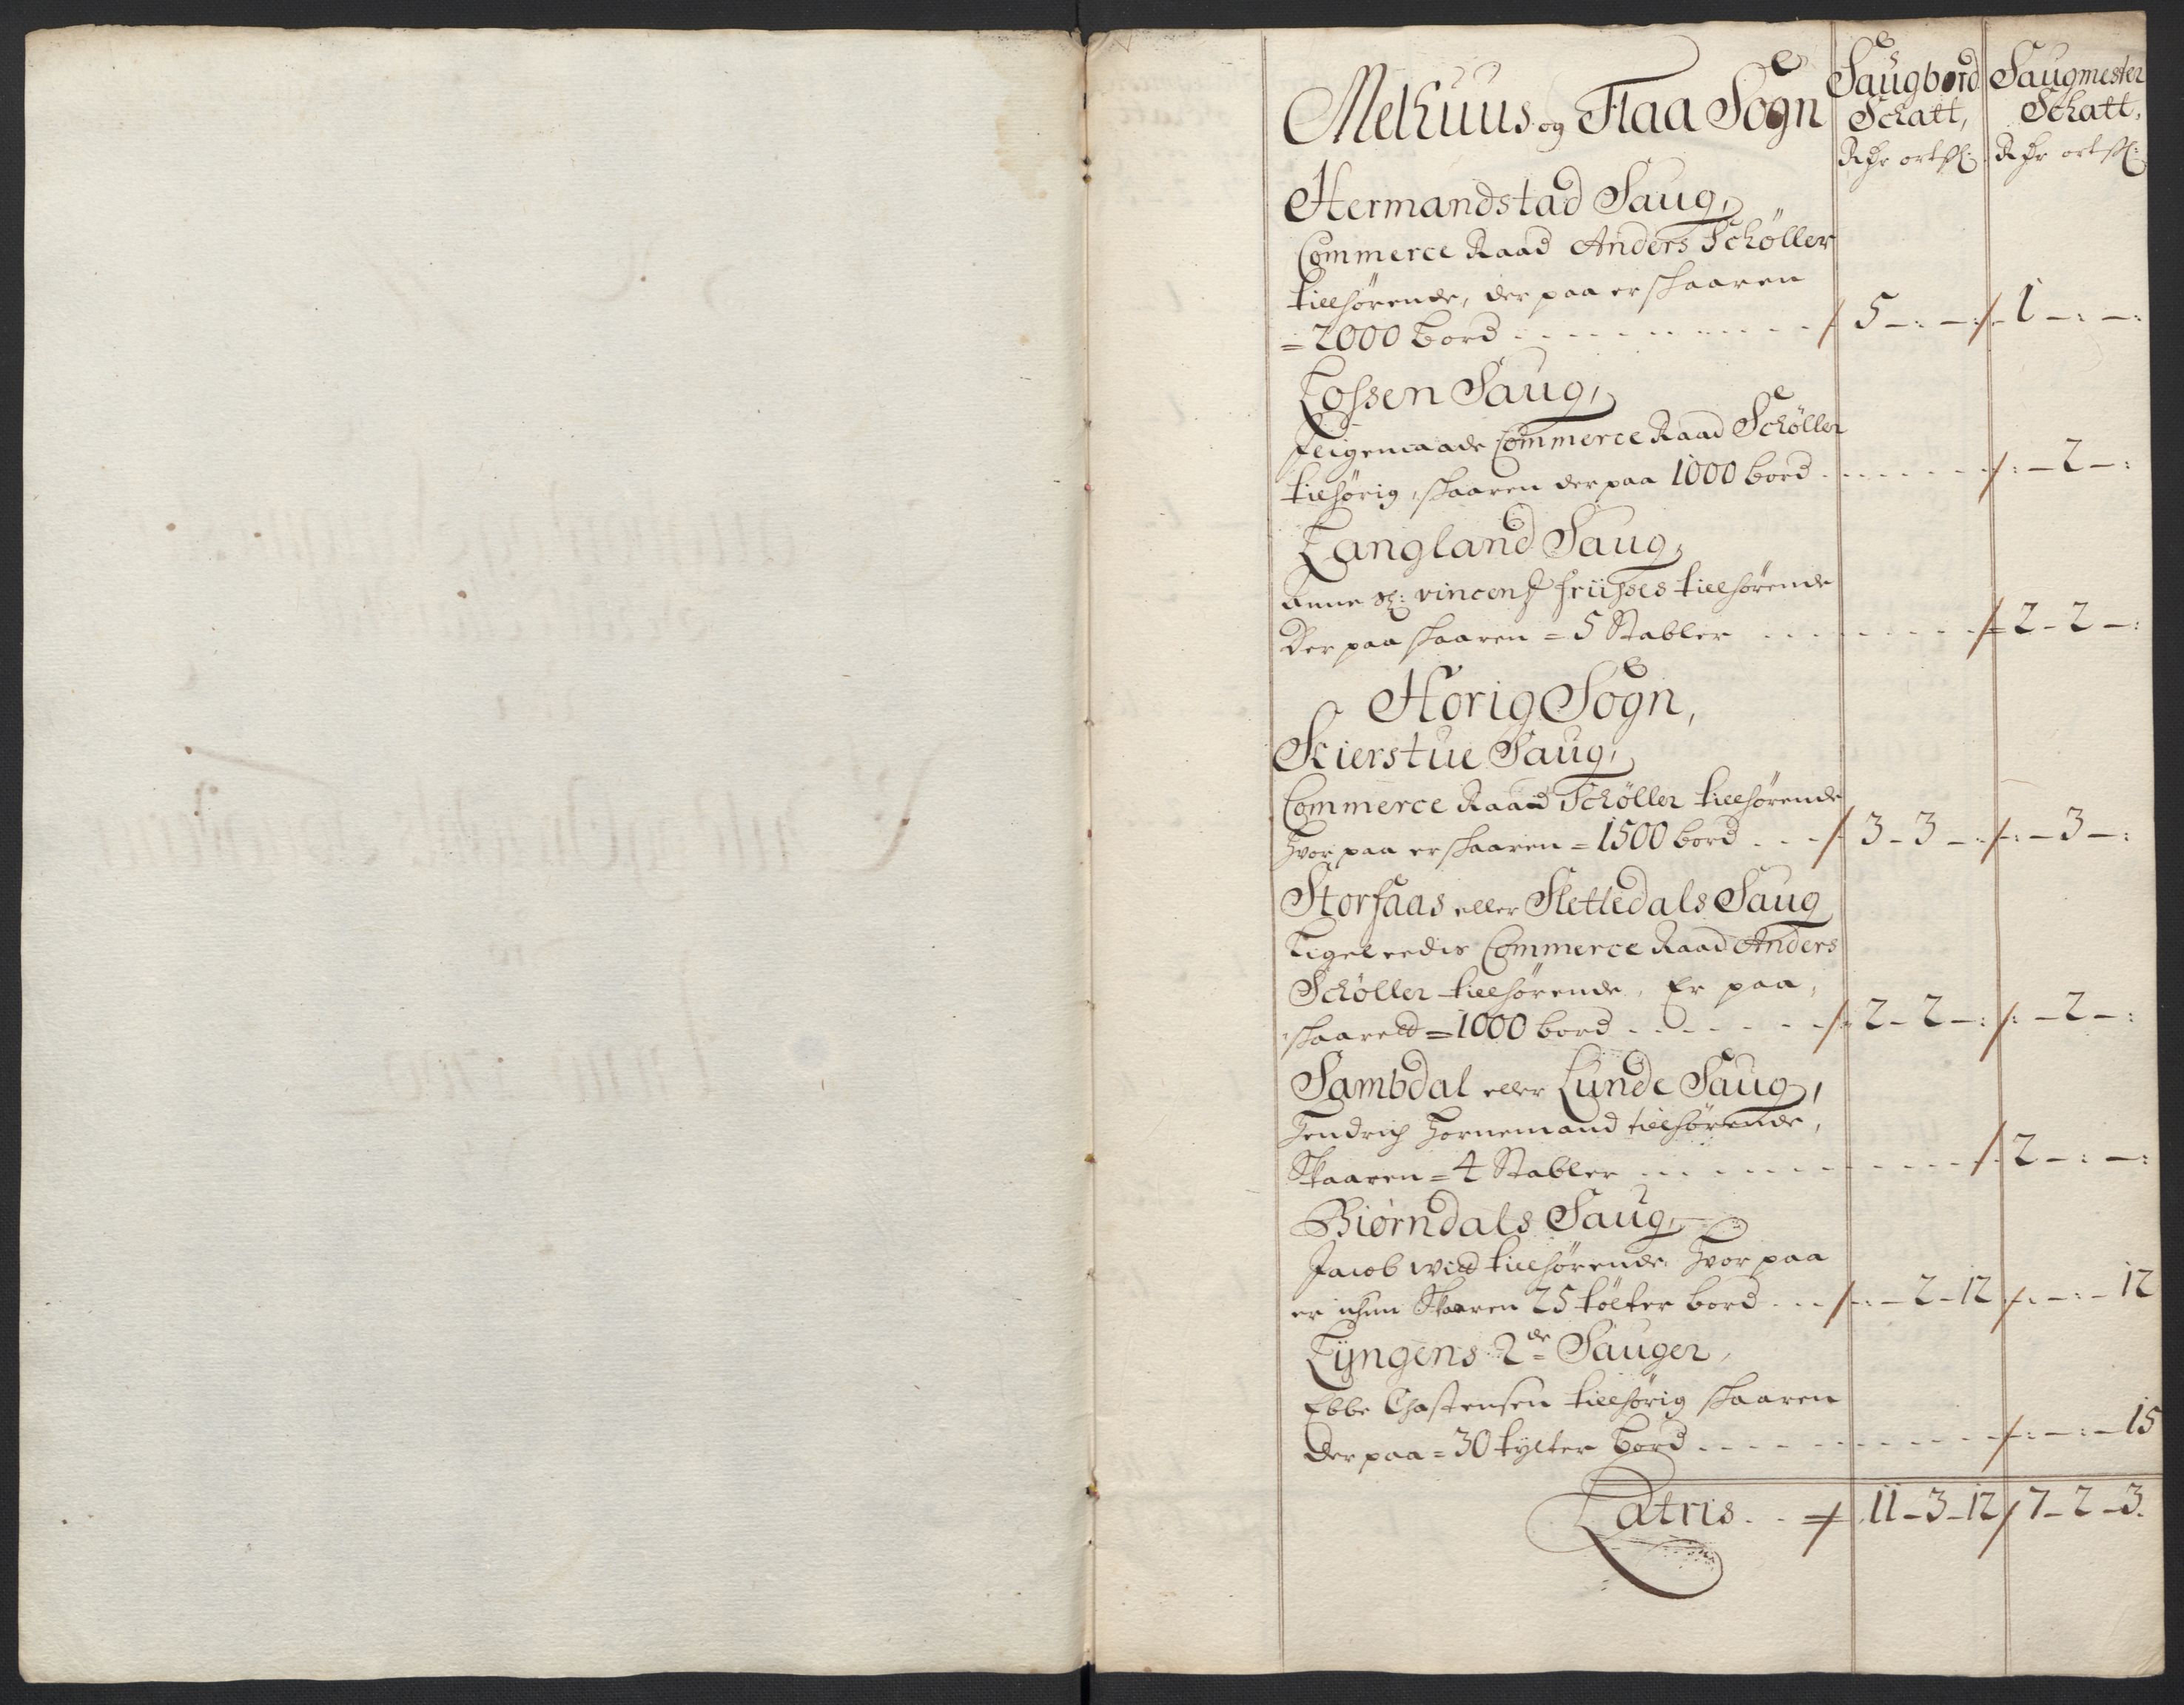 Melhuus og Flaa Sogn
Saugbord Schatt,
Rdr ort sl:
Saugmester Schatt,
Rdr ort sl:
Hermandstad Saug,
Commerce Raad Anders Schøller
tilhørende, der paa er skaaren
= 2000 bord . . . 5 – : – : 1 – : – :
Fossen Saug,
Ligemaade Commerce Raad Schøller
tilhørig, skaaren der paa 1000 bord . . . : – 2 – :
Langland Saug,
Anne Sl: vincents friisses tilhørende
Der paa skaaren = 5 Stabler . . . 2 – 2 – :
Horig Sogn,
Kierstue Saug,
Commerce Raad Schøller tilhørende
Hvor paa er skaaren = 1500 bord . . . 3 – 3 – : : – 3 – :
Storsaas eller Slettedals Saug
Ligeledis Commerce Raad Anders
Schøller tilhørende, Er paa,
skaaret = 1000 bord . . . 2 – 2 – : : – 2 – :
Sambdal eller Lunde Saug,
Hendrich Hornemand tilhørende,
Skaaren = 4 Stabler . . . 2 – : – :
Biørndals Saug,
Jacob wid tilhørende, Hvor paa
er ichun Skaaren 25 tolter bord . . . : – 2 – 12 : – : – 12
Lÿngens 2de Sauger,
Ebbe Chastensen tilhørig skaaren
der paa = 30 tylter bord . . . : – : – 15
Latris . . 11 – 3 – 12 7 – 2 – 3.